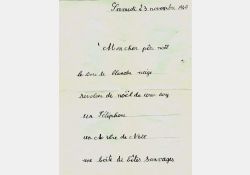 Samedi 23 novembre 1940
Mon cher père noël
le livre de Blanche neige
revolver de noël de cow boy
un Téléphone
un Arbre de Noël
une boîte de bêtes sauvages